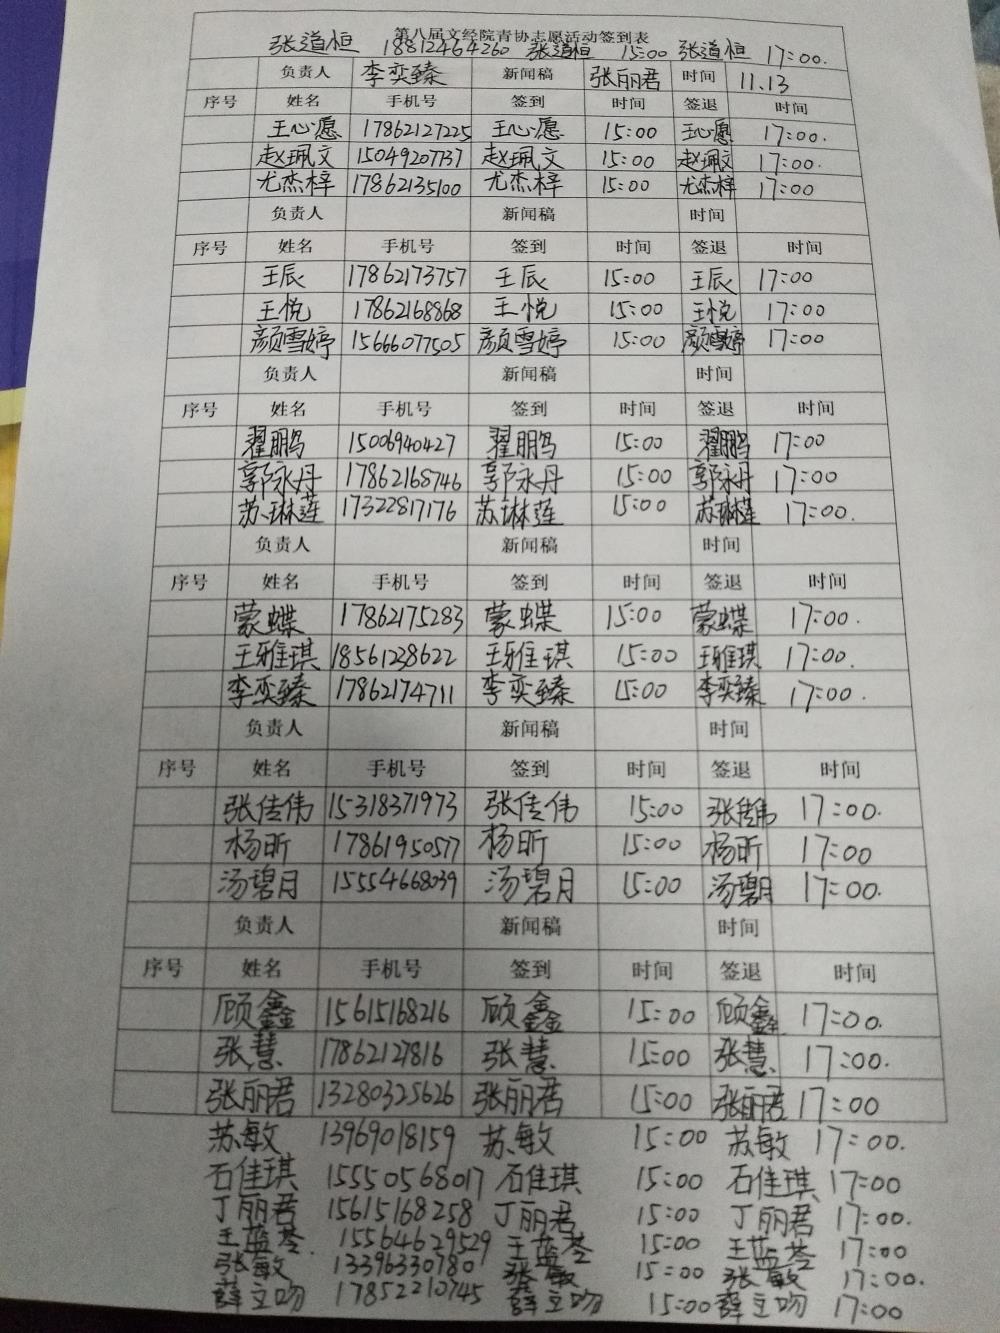 第八届文经院青协志愿活动签到表
张道恒 18812464260 张道恒 15:00 张道恒 17:00.
负责人 李奕臻 新闻稿 张丽君 时间 11.13
序号 姓名 手机号 签到 时间 签退 时间
王心愿 17862127225 王心愿 15:00 王心愿 17:00.
赵珮文 15049207737 赵珮文 15:00 赵珮文 17:00.
尤杰梓 17862135100 尤杰梓 15:00 尤杰梓 17:00
负责人 新闻稿 时间
序号 姓名 手机号 签到 时间 签退 时间
王辰 17862173757 王辰 15:00 王辰 17:00
王悦 17862168868 王悦 15:00 王悦 17:00
颜雪婷 15666077505 颜雪婷 15:00 颜雪婷 17:00
负责人 新闻稿 时间
序号 姓名 手机号 签到 时间 签退 时间
翟鹏鸟 15006940427 翟鹏鸟 15:00 翟鹏 17:00
郭永丹 17862168746 郭永丹 15:00 郭永丹 17:00
苏琳莲 17322817176 苏琳莲 15:00 苏琳莲 17:00.
负责人 新闻稿 时间
序号 姓名 手机号 签到 时间 签退 时间
蒙蝶 17862175283 蒙蝶 15:00 蒙蝶 17:00.
王雅琪 18561228622 王雅琪 15:00 王雅琪 17:00.
李奕臻 17862174711 李奕臻 15:00 李奕臻 17:00.
负责人 新闻稿 时间
序号 姓名 手机号 签到 时间 签退 时间
张传伟 15318371973 张传伟 15:00 张传伟 17:00.
杨昕 17861950577 杨昕 15:00 杨昕 17:00
汤碧月 15554668039 汤碧月 15:00 汤碧月 17:00.
负责人 新闻稿 时间
序号 姓名 手机号 签到 时间 签退 时间
顾鑫 15615168216 顾鑫 15:00 顾鑫 17:00.
张慧 17862127816 张慧 15:00 张慧 17:00.
张丽君 13280325626 张丽君 15:00 张丽君 17:00
苏敏 13969018159 苏敏 15:00 苏敏 17:00.
石佳琪 15550568017 石佳琪 15:00 石佳琪 17:00
丁丽君 15615168258 丁丽君 15:00 丁丽君 17:00.
王蓝苓 15564629529 王蓝苓 15:00 王蓝苓 17:00
张敏 13396330780 张敏 15:00 张敏 17:00.
薛立吻 17852210745 薛立吻 15:00 薛立吻 17:00